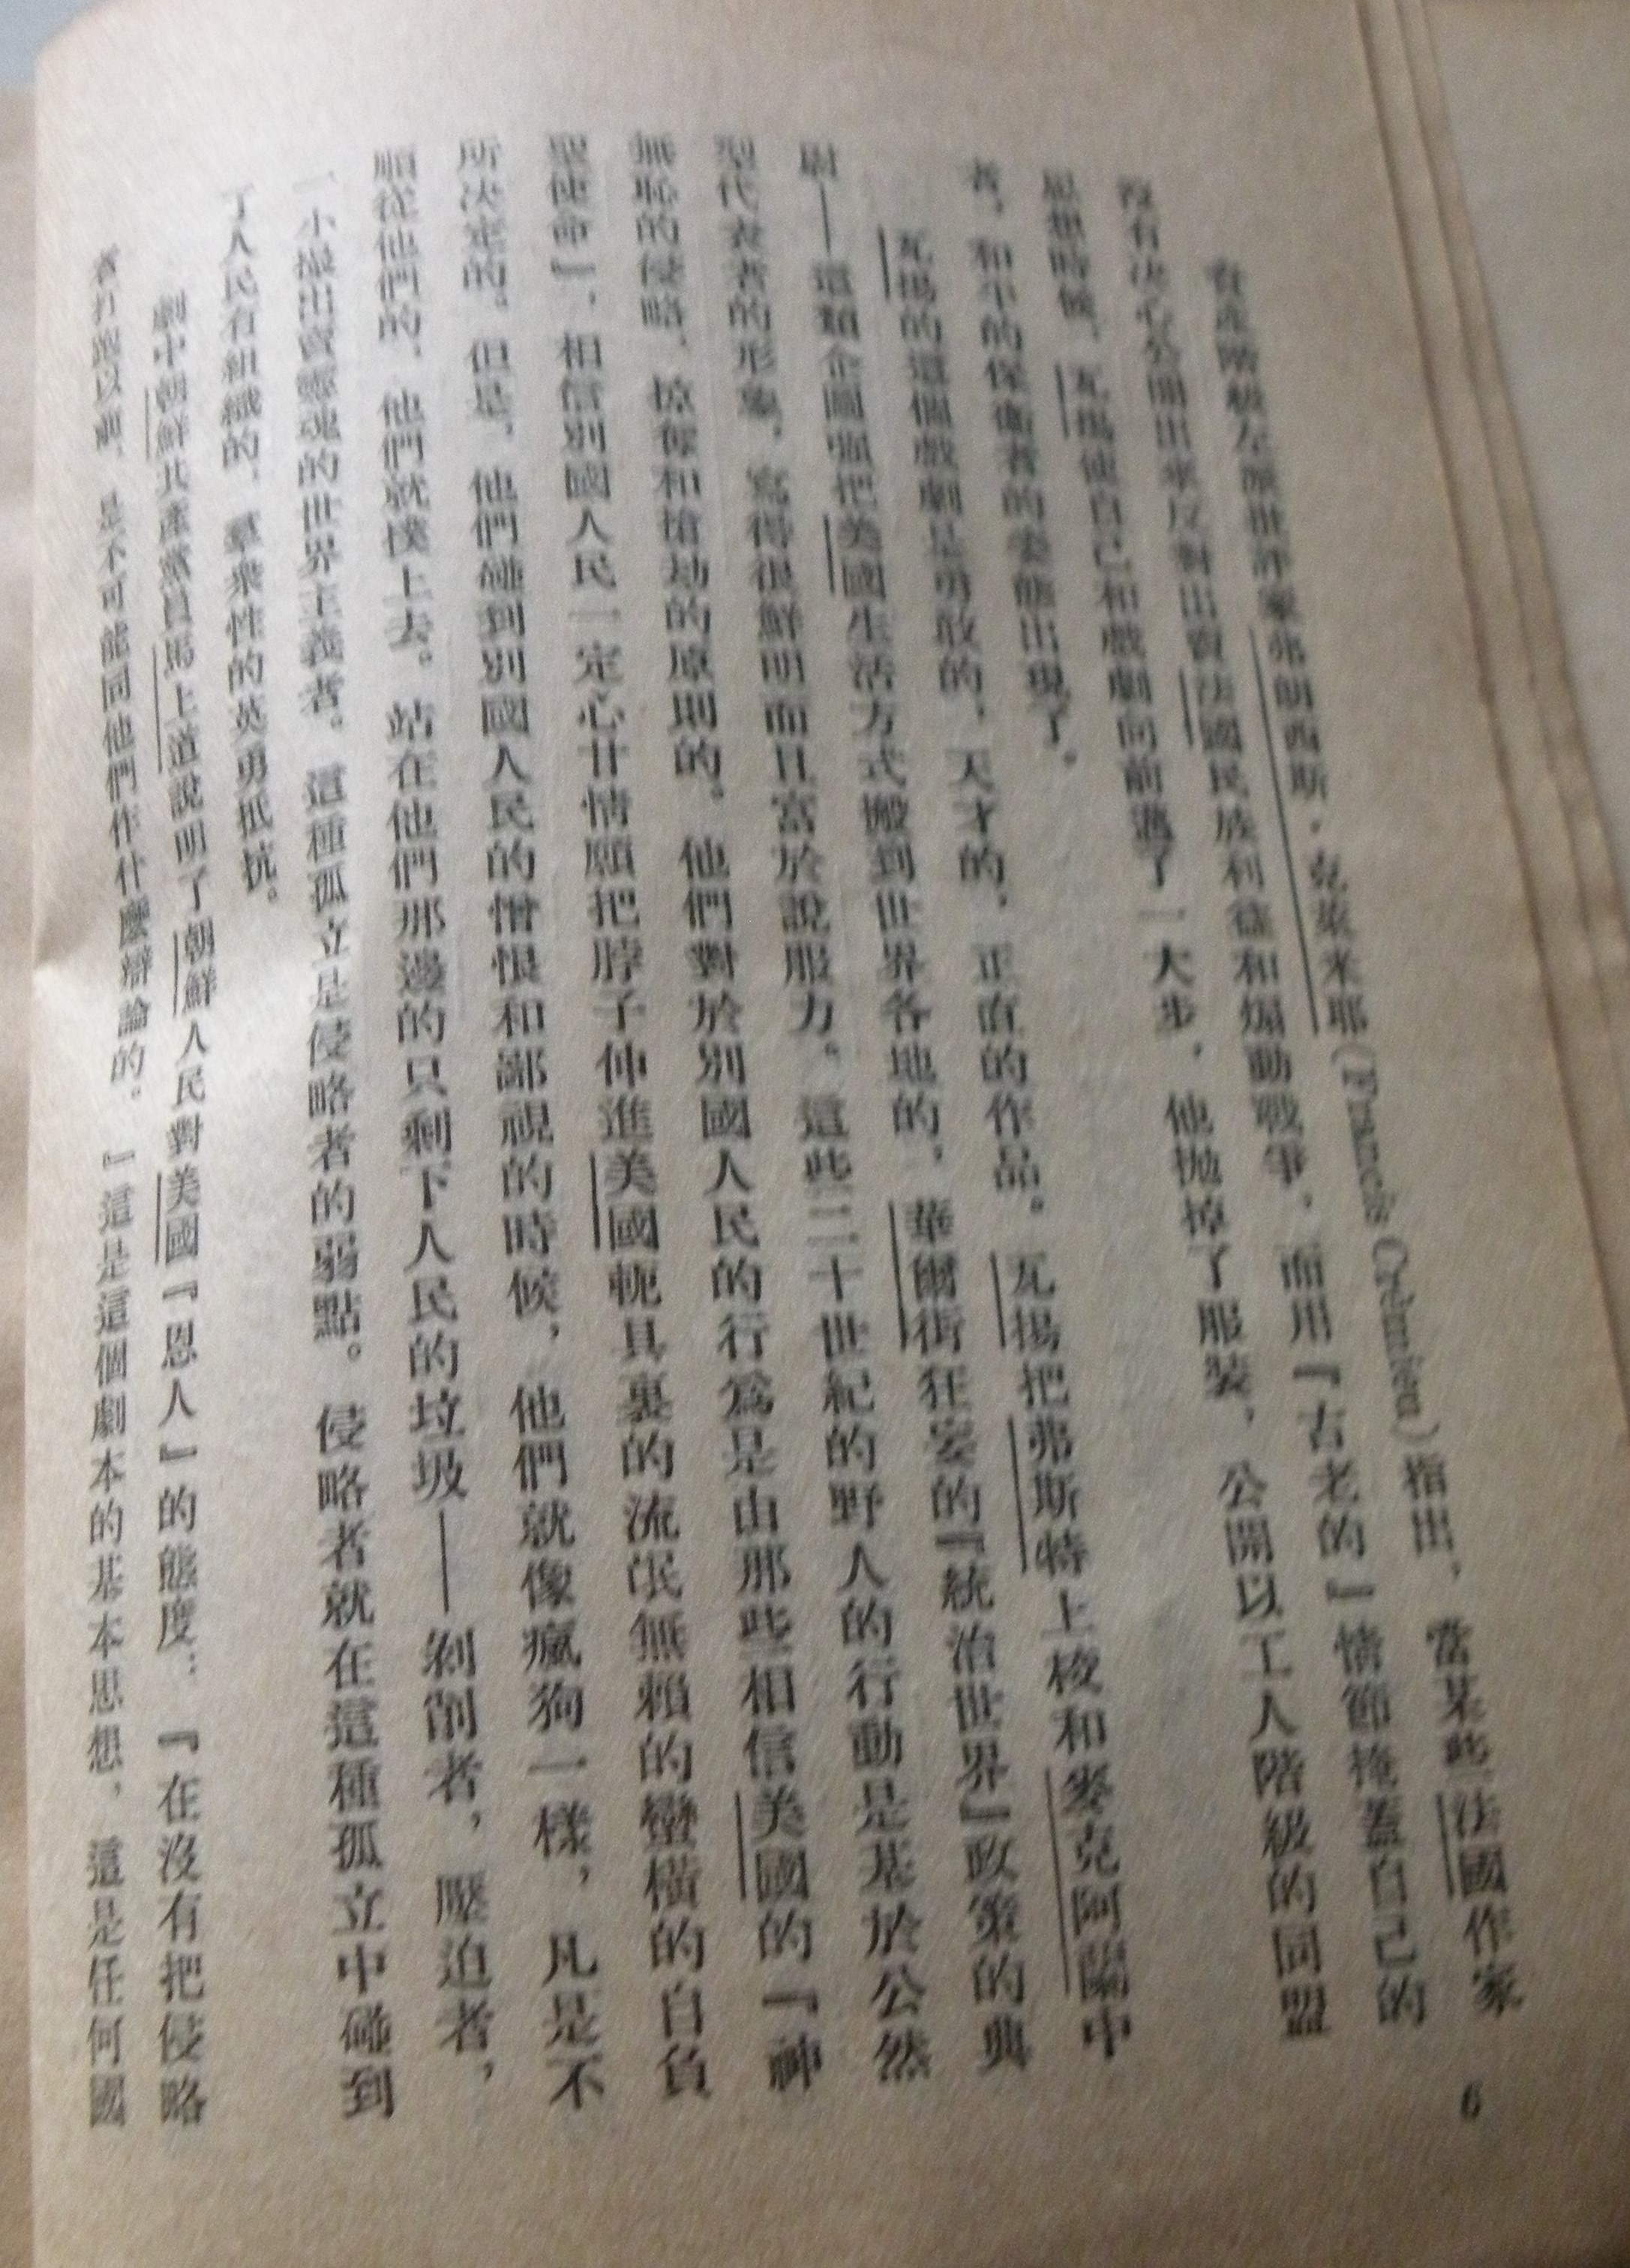 資產階級左派批評家弗朗西斯·克萊米耶(Francis Crémieu)指出,當某些法國作家
沒有決心公開出來反對出賣法國民族利益和煽動戰爭,而用『古老的』情節掩蓋自己的
思想時候,瓦揚使自己和戲劇向前邁了一大步,他拋掉了服裝,公開以工人階級的同盟
者,和平的保衞者的姿態出現了。
瓦揚的這個戲劇是勇敢的,天才的,正直的作品。瓦揚把弗斯特上校和麥克阿蘭中
尉——這類企圖强把美國生活方式搬到世界各地的,華爾街狂妄的『統治世界』政策的典
型代表者的形象,寫得很鮮明而且富於說服力。這些二十世紀的野人的行動是基於公然
無恥的侵略,掠奪和搶劫的原則的。他們對於別國人民的行爲是由那些相信美國的『神
聖使命』,相信別國人民一定心甘情願把脖子伸進美國軛具裏的流氓無賴的蠻橫的自負
所決定的。但是,他們碰到別國人民的憎恨和鄙視的時候,他們就像瘋狗一樣,凡是不
順從他們的,他們就撲上去。站在他們那邊的只剩下人民的垃圾——剝削者,壓迫者,
一小撮出賣靈魂的世界主義者。這種孤立是侵略者的弱點。侵略者就在這種孤立中碰到
了人民有組織的,羣衆性的英勇抵抗。
劇中朝鮮共產黨員馬上道說明了朝鮮人民對美國『恩人』的態度:『在沒有把侵略
者打跑以前,是不可能同他們作什麼辯論的。』這是這個劇本的基本思想,這是任何國
6